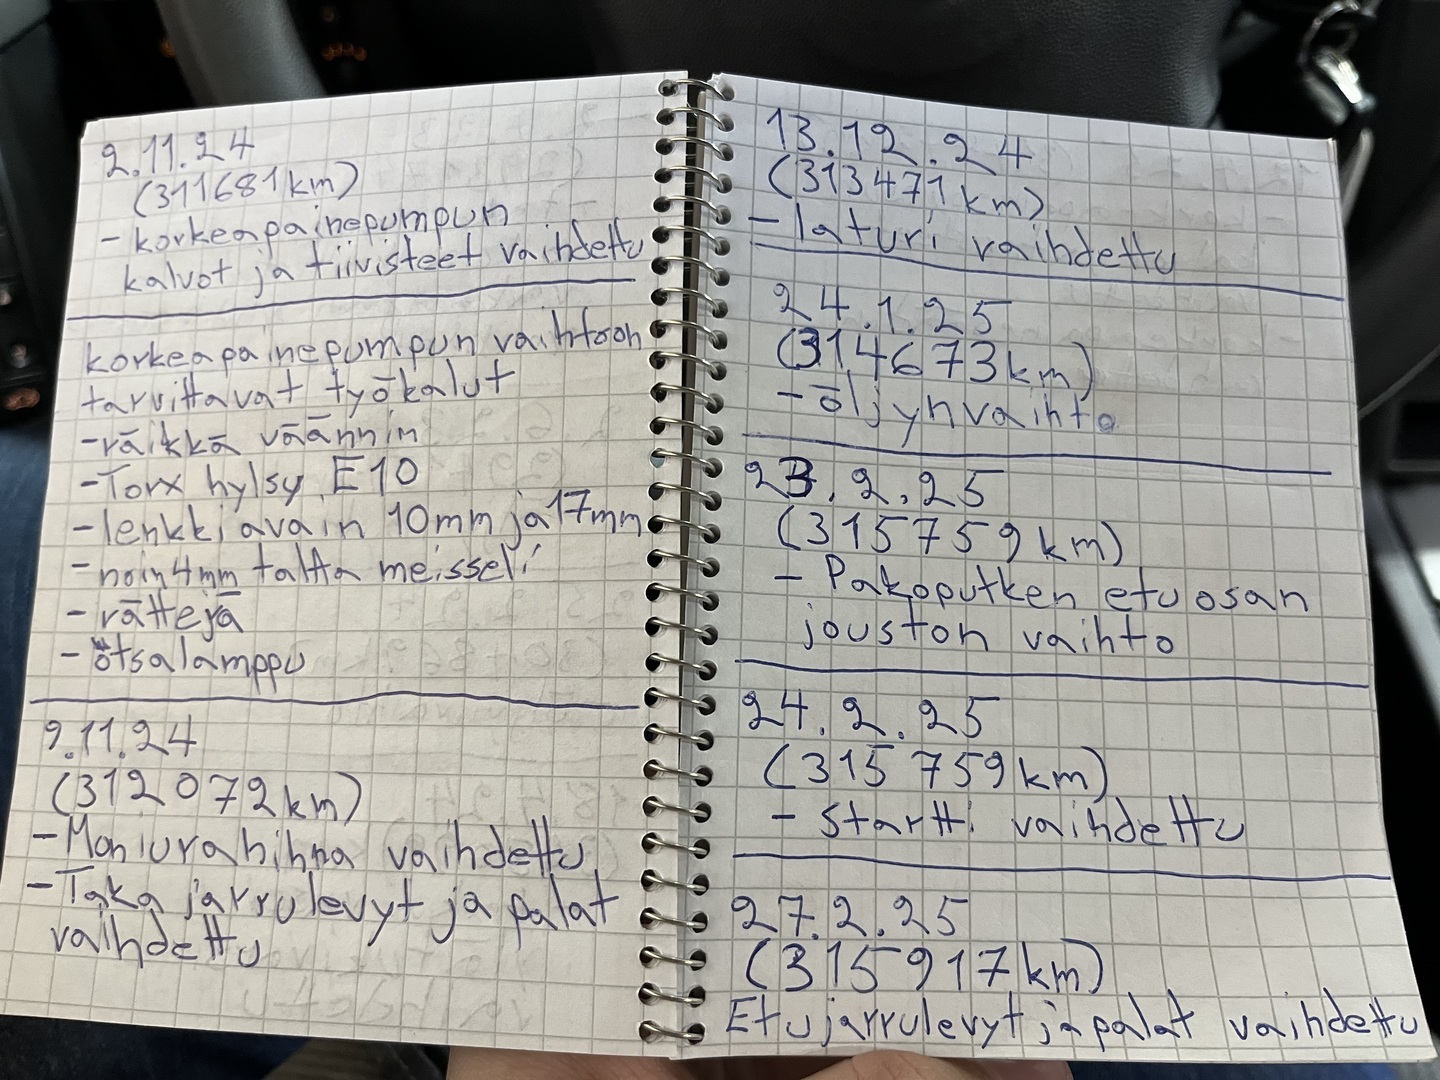 2.11.24
(311681km)
- korkeapainepumpun
kalvot ja tiivisteet vaihdettu
korkeapainepumpun vaihtoon
tarvittavat työkalut
- räikkä väännin
- Torx hylsy E10
- lenkkiavain 10mm ja 17mm
- noin 4mm taltta meisseli
- rättejä
- otsalamppu
9.11.24
(312 072km)
- Moniurahihna vaihdettu
- Taka jarrulevyt ja palat
vaihdettu
13.12.24
(313471km)
- laturi vaihdettu
24.1.25
(314673km)
- öljynvaihto
23.2.25
(315759km)
- Pakoputken etuosan
jouston vaihto
24.2.25
(315 759km)
- startti vaihdettu
27.2.25
(315917km)
Etujarrulevyt ja palat vaihdettu